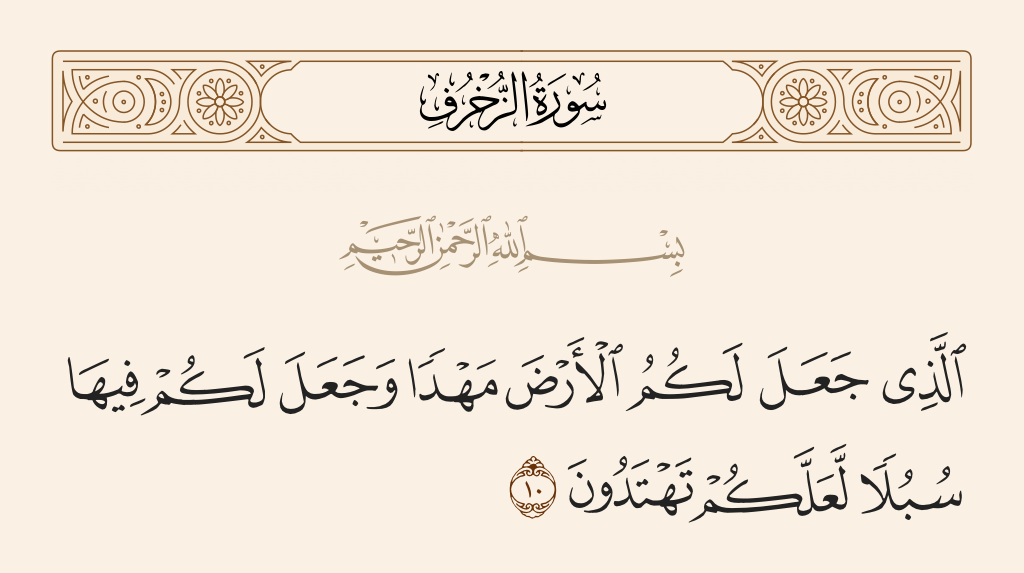 سُورَةُ الزُّخْرُفِ
بِسْمِ ٱللَّهِ ٱلرَّحْمَٰنِ ٱلرَّحِيمِ
ٱلَّذِى جَعَلَ لَكُمُ ٱلْأَرْضَ مَهْدًا وَجَعَلَ لَكُمْ فِيهَا
سُبُلًا لَّعَلَّكُمْ تَهْتَدُونَ ١٠